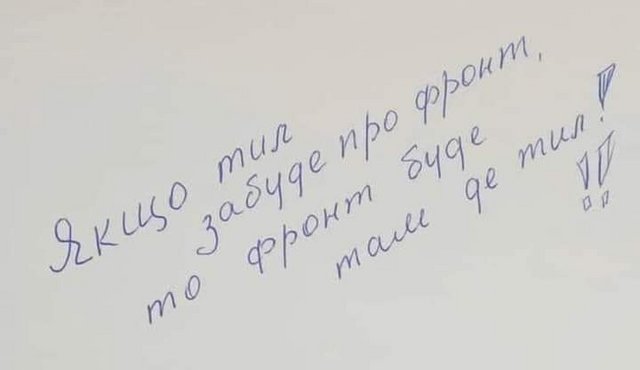 Якщо тил
забуде про фронт,
то фронт буде
там де тил!!!